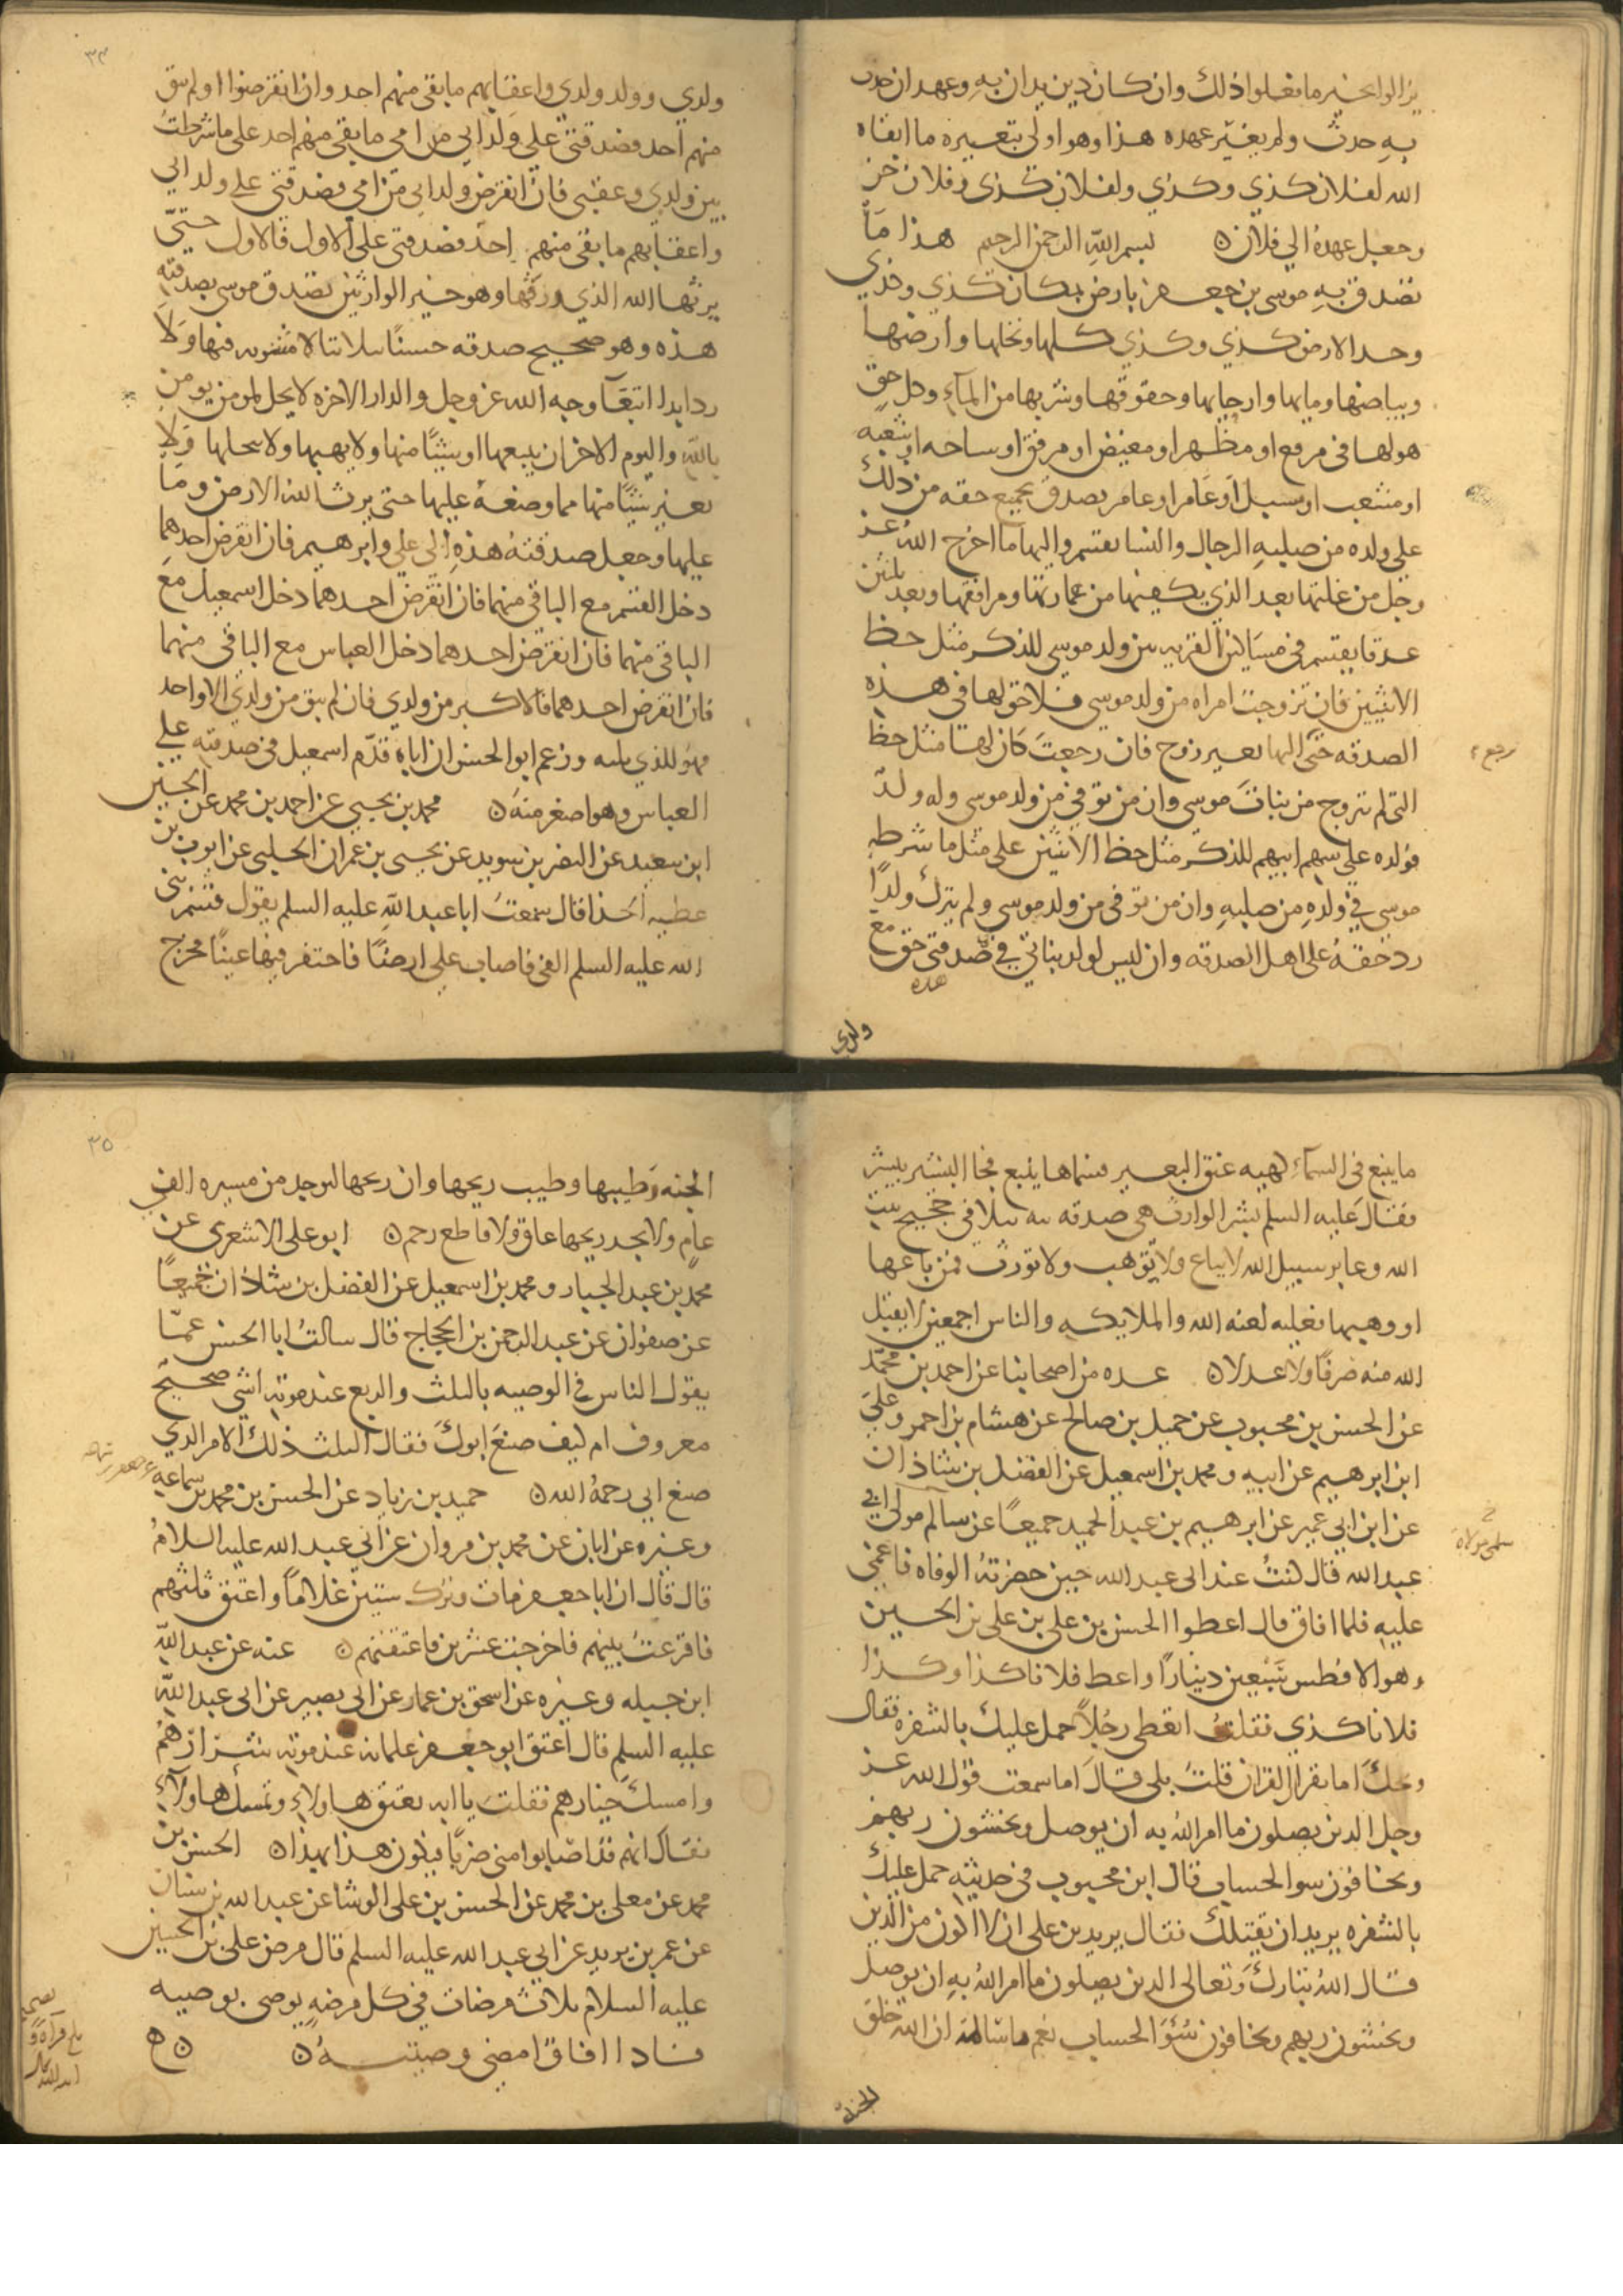 يزالوا بخير ما فعلوا ذلك وان كان دين يدان به وعهد ان حدث
به حدث ولم يغير عهده هذا وهو اولى بتغييره ما ابقاه
الله لفلان كذي وكذي ولفلان كذى وفلان حر
وجعل عهده الي فلان ن بسم الله الرحمن الرحيم هذا مَا
تصدق به موسى بن جعفر بارض بمكان كذي وكذي
وحد الارض كذي وكذي كلها ونخلها وارضها
وبياضها ومايها وارجايها وحقوقها وشربها من المآء وكل حق
هو لها في مرفع او مظهر او مغيض او مرفق او ساحه او شعبه
او مشعب او مسيل او عَامر او غامر تصدق بجميع حقه من ذلك
على ولده من صلبه الرجال والنسا يقسم واليها ما اخرج الله عز
وجل من غلتها بعد الذي يكفيها من عمارتها ومرافقها وبعد ثلثين
عدقا يقسم في مسَاكين القريه بين ولد موسى للذكر مثل حظ
الانثيين فان تزوجت امراه من ولد موسى فلا حق لها في هذه
الصدقه حتى اليها بغير زوج فان رجعتَ كان لها مثل حظ
رجع
التي لم تتزوج من بنات موسى وان من توفي من ولد موسى وله ولد
فولده على سهم ابيهم للذكر مثل حظ الانثيين على مثل ما شرط
موسى في ولده من صلبه وان من توفى من ولد موسى ولم يترك ولدًا
رد حقهُ على اهل الصدقه وان ليس لولد بناتي في صدقتى حق مع
هذه
ولدي
٣٤
ولدي وولد ولدي واعقابهم ما بقى منهم احد وان انقرضوا اولم يبق
منهم احد فصدقتى على ولد ابي من امي ما بقى منهم احد على ما شرطتُ
بين ولدي وعقبى فان انقرض ولد ابى من امي فصدقتى على ولد ابي
واعقابهم ما بقى منهم احد فصدقتى على الاول فالاول حتيّ
يرثها الله الذي ورثها وهو خير الوارثين تصدق موسى بصدقته
هذه وهو صحيح صدقه حبسًا بتلا بتا لا مثنويه فيها وَلَا
ردا ابدا ابتغآ وجه الله عز وجل والدار الاخره لا يحل لمومن يومن
بالله واليوم الاخر ان يبيعها او شيئًا منها ولا يهبها ولا ينحلها وَلا
يغير شيئًا منها مما وضعهُ عليها حتى يرث الله الارض ومَا
عليها وجعل صدقتهُ هذه الى علي وابرهيم فان انقرض احدهما
دخل القسم مع الباقي منهما فان انقرض احدهما دخل اسمعيل مع
الباقي منهما فان انقرض احدهما دخل العباس مع الباقي منهما
فان انقرض احدهما فالاكبر من ولدي فان لم يبق من ولدي الا واحد
فهو للذي يليه وزعم ابو الحسن ان اباه قدّم اسمعيل في صدقته على
العباس وهو اصغر منهُ ن محمد بن يحيى عن احمد بن محمد عن الحسين
ابن سعيد عن النضر بن سويد عن يحيى بن عمران الحلبي عن ايوب بن
عطيه الحذا قال سمعتُ ابا عبد الله عليه السلم يقول قسم نبى
الله عليه السلم الفى فاصاب على ارضًا فاحتفر فيها عينًا فخرج
ما ينبع في السمآء لهيه عنق البعير فسماها ينبع فجا البشير يبشر
فقال عليه السلم بشر الوارث هى صدقه بته بتلا في حجيج بيت
الله وعابر سبيل الله لا يباع ولا يوهب ولا تورث فمن باعها
او وهبها فعليه لعنه الله والملايكه والناس اجمعين لا يقبل
الله منه صرفًا ولا عدلا ن عده من اصحابنا عن احمد بن محمّد
عن الحسن بن محبوب عن جميل بن صالح عن هشام بن احمر وعليّ
ابن ابرهيم عن ابيه ومحمد بن اسمعيل عن الفضل بن شاذان
عن ابن ابي عمير عن ابرهيم بن عبد الحميد جميعًا عن سالم مولى ابي
سلمى مولاة
عبد الله قال كنتُ عند ابى عبد الله حين حضرتهُ الوفاه فاغمى
عليه فلما افاق قال اعطوا الحسن بن على بن على بن الحسين
وهو الافطس سَبْعين دينارًا واعط فلانا كذا وكذا
فلانا كذي فقلتُ اتعطى رجُلاً حمل عليك بالشفره فقال
ويحكَ اما تقرا القران قلتُ بلى قالَ اما سمعت قول الله عز
وجل الذين يصلون ما امر الله به ان يوصل ويخشون ربهم
ويخافون سوا لحساب قال ابن محبوب في حديثه حمل عليك
بالشفره يريد ان يقتلك فقال يريدين على ان لا اكون من الذين
قال اللهُ تبارك وَتعالى الذين يصلون ما امر اللهُ به ان يوصل
ويخشون ربهم ويخافون سُوَ الحساب نعم يا سالمه ان الله خلق
الجنة
٣٥
الجنه وَطيبها وطيب ريحها وان ريحها ليوجد من مسيره الفى
عام ولا يجد ريحها عاق ولا قاطع رحم ن ابو على الاشعرى عن
محمد بن عبد الجبار ومحمد بن اسمعيل عن الفضل بن شاذان جميعًا
عن صفوان عن عبد الرحمن بن الحجاج قال سالتُ ابا الحسن عمّا
يقول الناس في الوصيه بالثلث والربع عند موته اشى صحيح
معروف ام كيف صنعَ ابوكَ فقال الثلث ذلك الامر الذي
صنع ابي رحمهُ الله ن حميد بن زياد عن الحسن بن محمد بن سماعه
وغيره عن ابان عن محمد بن مروان عن ابى عبد الله عليه السلامُ
قال قال ان ابا جعفر مات وترك ستين غلامًا واعتق ثلثهم
فاقرعتُ بينهم فاخرجت عشرين فاعتقتهم ن عنه عن عبد الله
ابن جبيله وغيره عن اسحق بن عمار عن ابى بصير عن ابى عبد اللّه
عليه السلم قال اعتق ابو جعفر غلمانه عند موته شرارهُم
وامسكَ خيارهم فقلت يا ابه تعتق هاولاءِ وتمسك هاولاءِ
فقال انهم قد اصابوا منى ضربًا فيكون هذا بهذا ن الحسين بن
محمد عن معلى بن محمد عن الحسن بن على الوشا عن عبد الله بن سنان
عن عمر بن يزيد عن ابي عبد الله عليه السلم قال مرض على بن الحسين
عليه السلام ثلاث مرضات في كل مرضه يوصى بوصيه
فاذا افاق امضى وصيتهُ ن ن ه